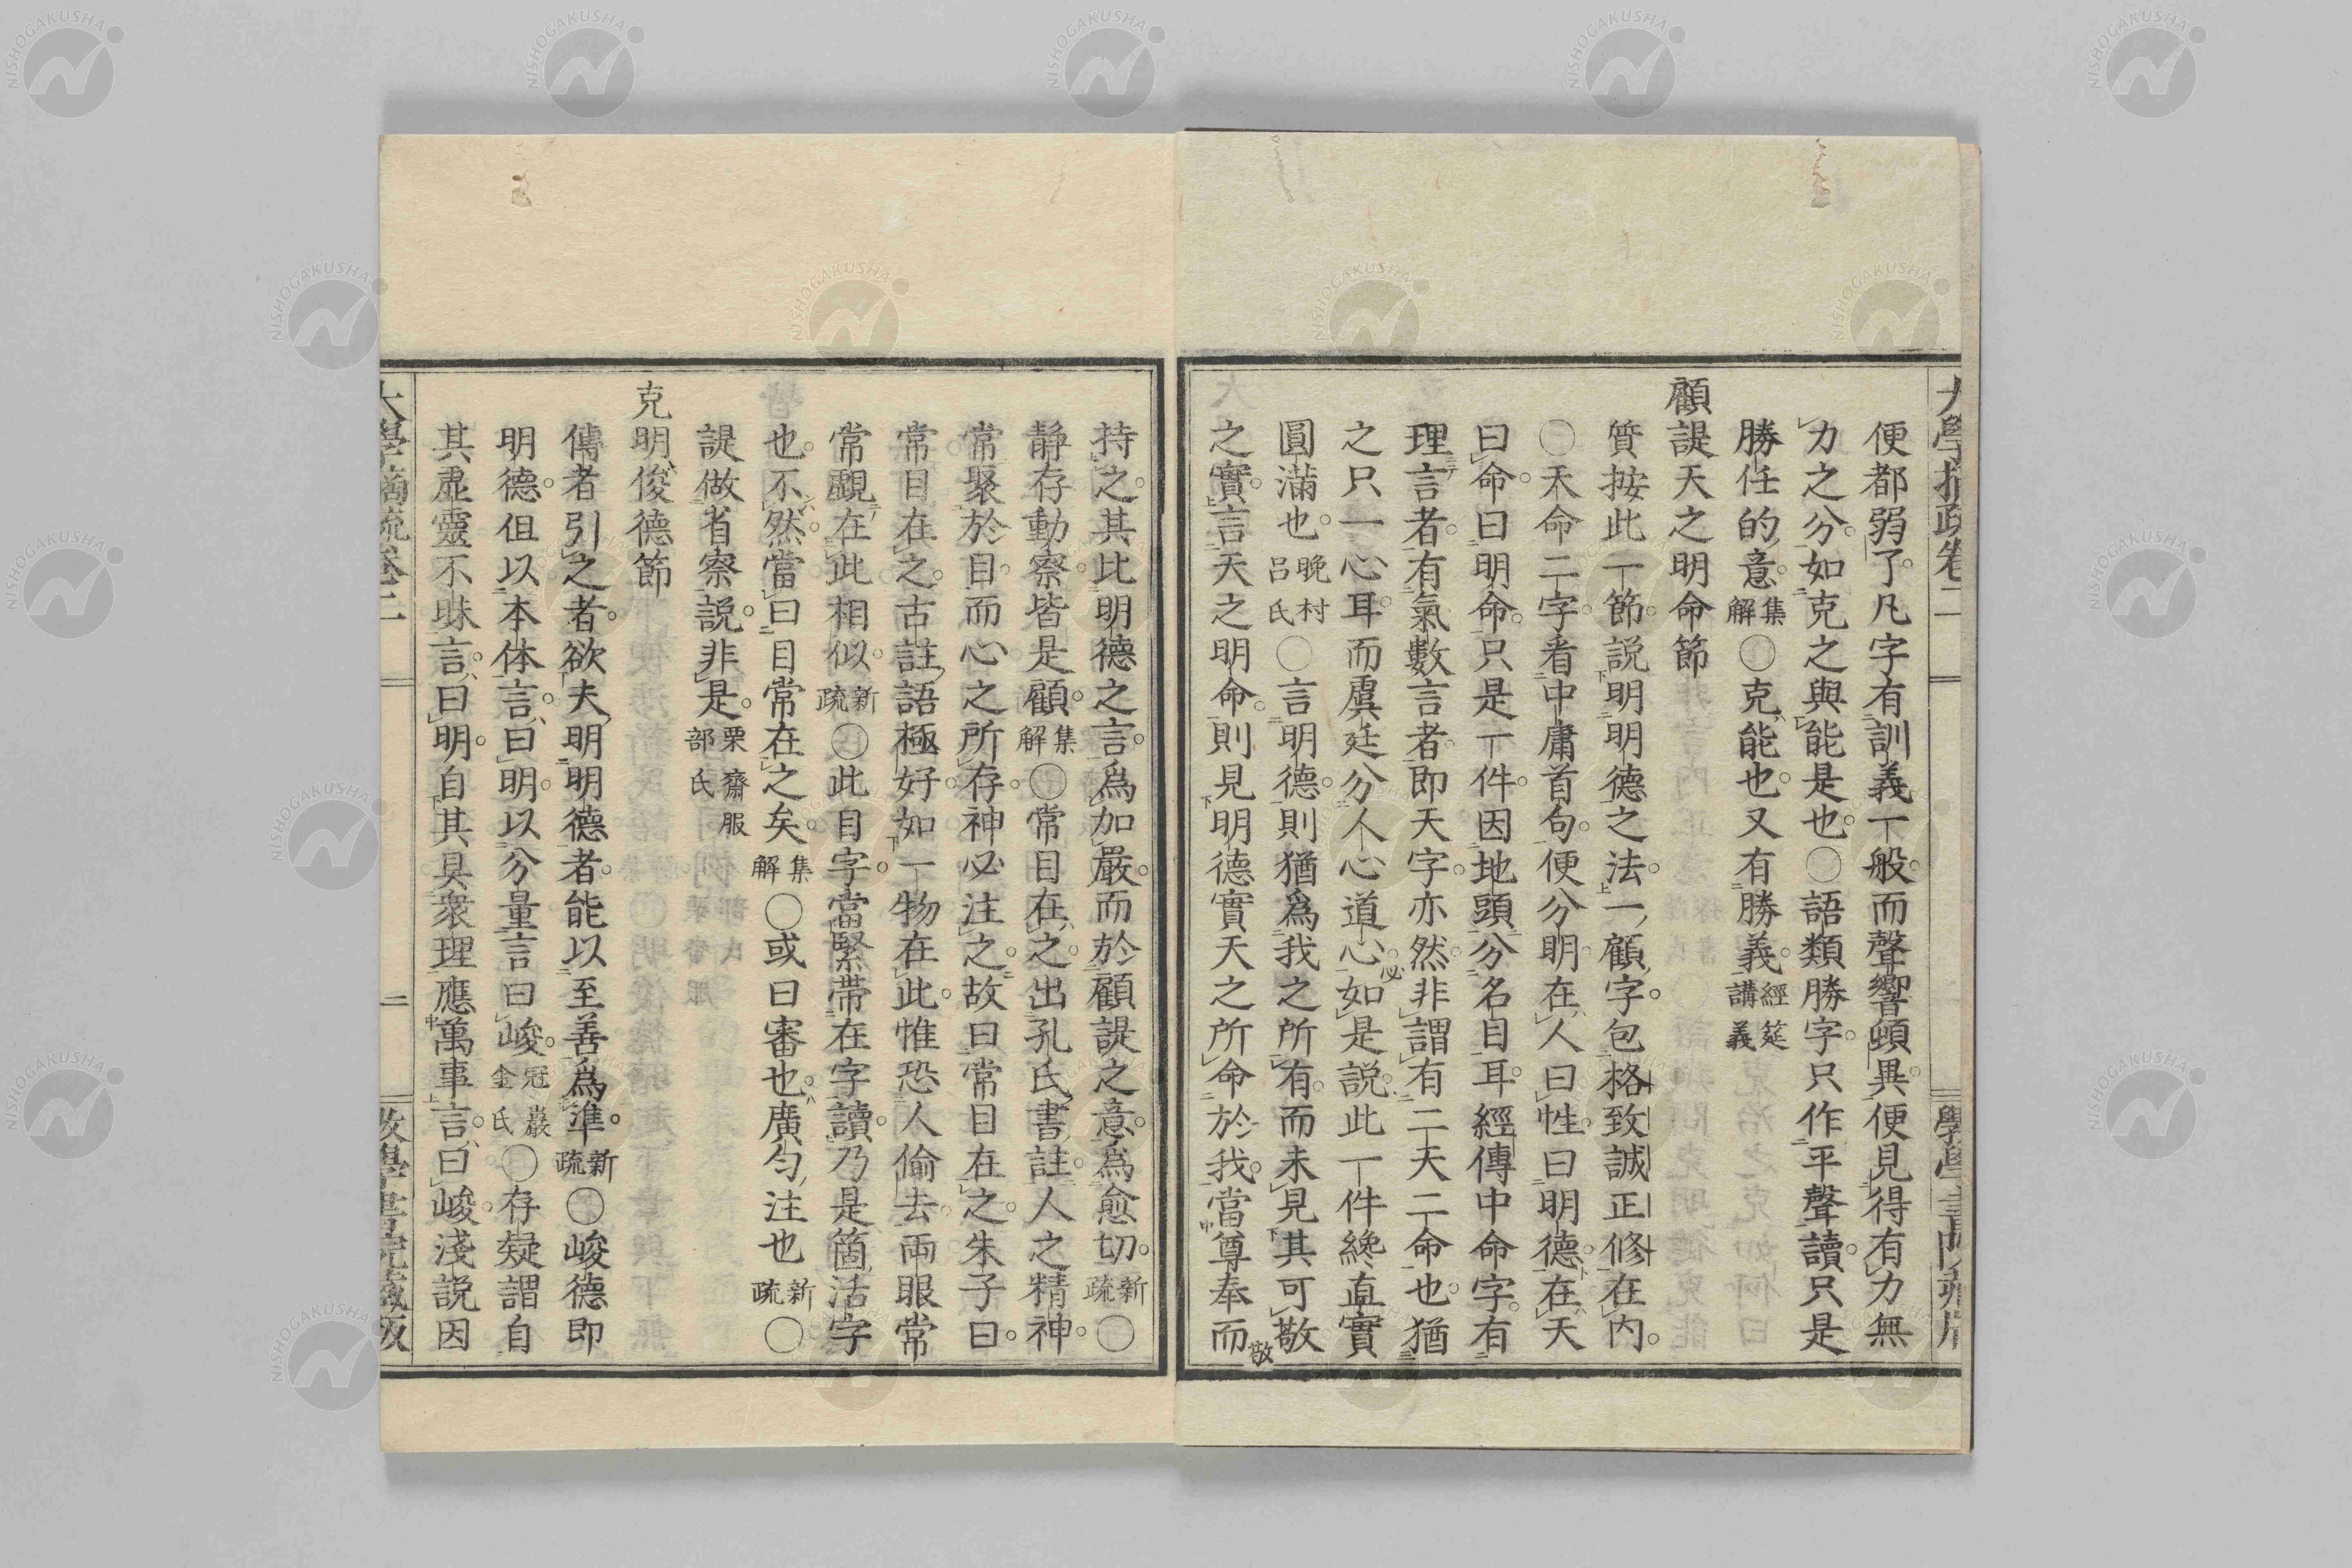 便都弱了。凡字有訓義一般。而聲響頓異。便見得有力無
力之分。如克之與能是也。〇語類勝字。只作平聲讀。只是
勝任的意。集解〇克能也。又有勝義。經筵講義
顧諟天之明命節
質按此一節。説明明德之法。一顧字。包格致誠正修在內。
〇天命二字。看中庸首句。便分明。在人曰性。曰明德。在天
曰命。曰明命。只是一件。因地頭分名目耳。經傳中命字。有
理言者。有氣數言者。即天字亦然。非謂有二天二命也。猶
之只一心耳。而虞廷分人心道心。如是説。此一件纔直實
圓滿也。晚村呂氏〇言明德。則猶爲我之所有。而未見其可敬
之實。言天之明命。則見明德實天之所命於我。當尊奉而
持之。其比明德之言。爲加嚴。而於顧諟之意。爲愈切。新疏〇
靜存動察。皆是顧。集解〇常目在之。出孔氏書註。人之精神。
常聚於目。而心之所存。神必注之。故曰常目在之。朱子曰。
常目在之。古註語極好。如一物在此。惟恐人偷去。兩眼常
常覷在此相似。新疏〇此目字。當緊帶在字讀。乃是箇活字
也。不然。當曰目常在之矣。集解〇或曰審也。廣勻注也新疏〇
諟做省察説。非是。栗齋服部氏
克明俊德節
傳者引之者。欲夫明明德者。能以至善爲準。新疏〇峻德即
明德。但以本体言。曰明。以分量言曰峻。冠巖金氏〇存疑謂自
其虛靈不昧言。曰明。自其具衆理應萬事言。曰峻。淺説因
大學摘疏卷二
二